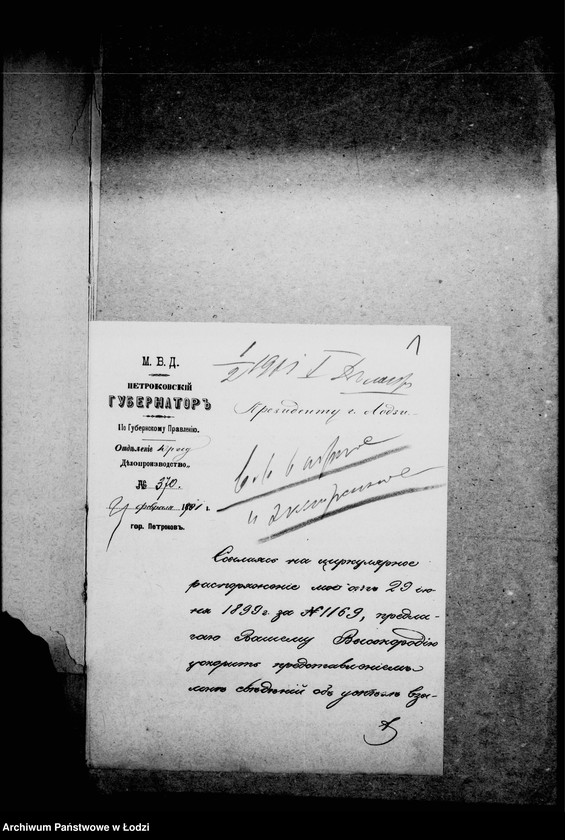 1
М. В. Д.
ПЕТРОКОВСКІЙ
ГУБЕРНАТОРЪ
По Губернскому Правленію.
Отдѣленіе
Дѣлопроизводство
№ 370.
февраля
гор. Петроковъ.
1/2 1901 I
Президенту г. Лодзи.
Ссылаясь на циркулярное
распоряженіе мое отъ 29 ію-
ня 1899 г. за № 1169, предла-
гаю Вашему Высокородію
ускорить представленіемъ
мнѣ свѣдѣній объ взы-
Archiwum Państwowe w Łodzi